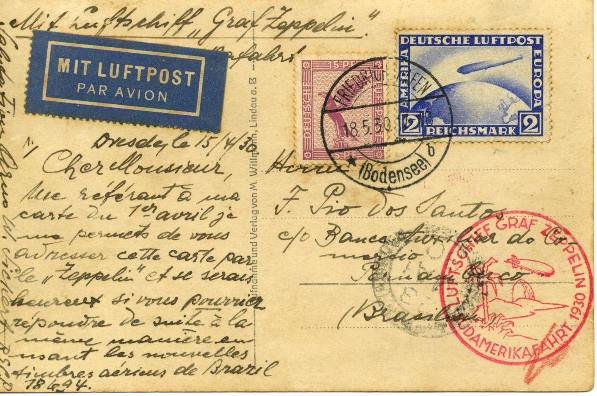 Mit Luftschiff „Graf Zeppelin"
MIT LUFTPOST
PAR AVION
Dresde, le 15/4/30
Cher Monsieur,
Me référant à ma
carte du 1er avril je
me permets de vous
adresser cette carte par
le „Zeppelin" et se serais
heureux si vous pourriez
répondre de suite à la
même manière en
usant les nouvelles
timbres aériens de Brazil
Verlag von M. Lindau a. B.
15 PF.
DEUTSCHE LUFTPOST
AMERIKA
EUROPA
2 REICHSMARK 2
FRIEDRICHSHAFEN
18.5.30
(Bodensee) b
Herrn
F. Pio dos Santos
c/o Banco Auxiliar do Com
mercio
Pernambuco
Brasilien
LUFTSCHIFF GRAF ZEPPELIN
SÜDAMERIKAFAHRT 1930